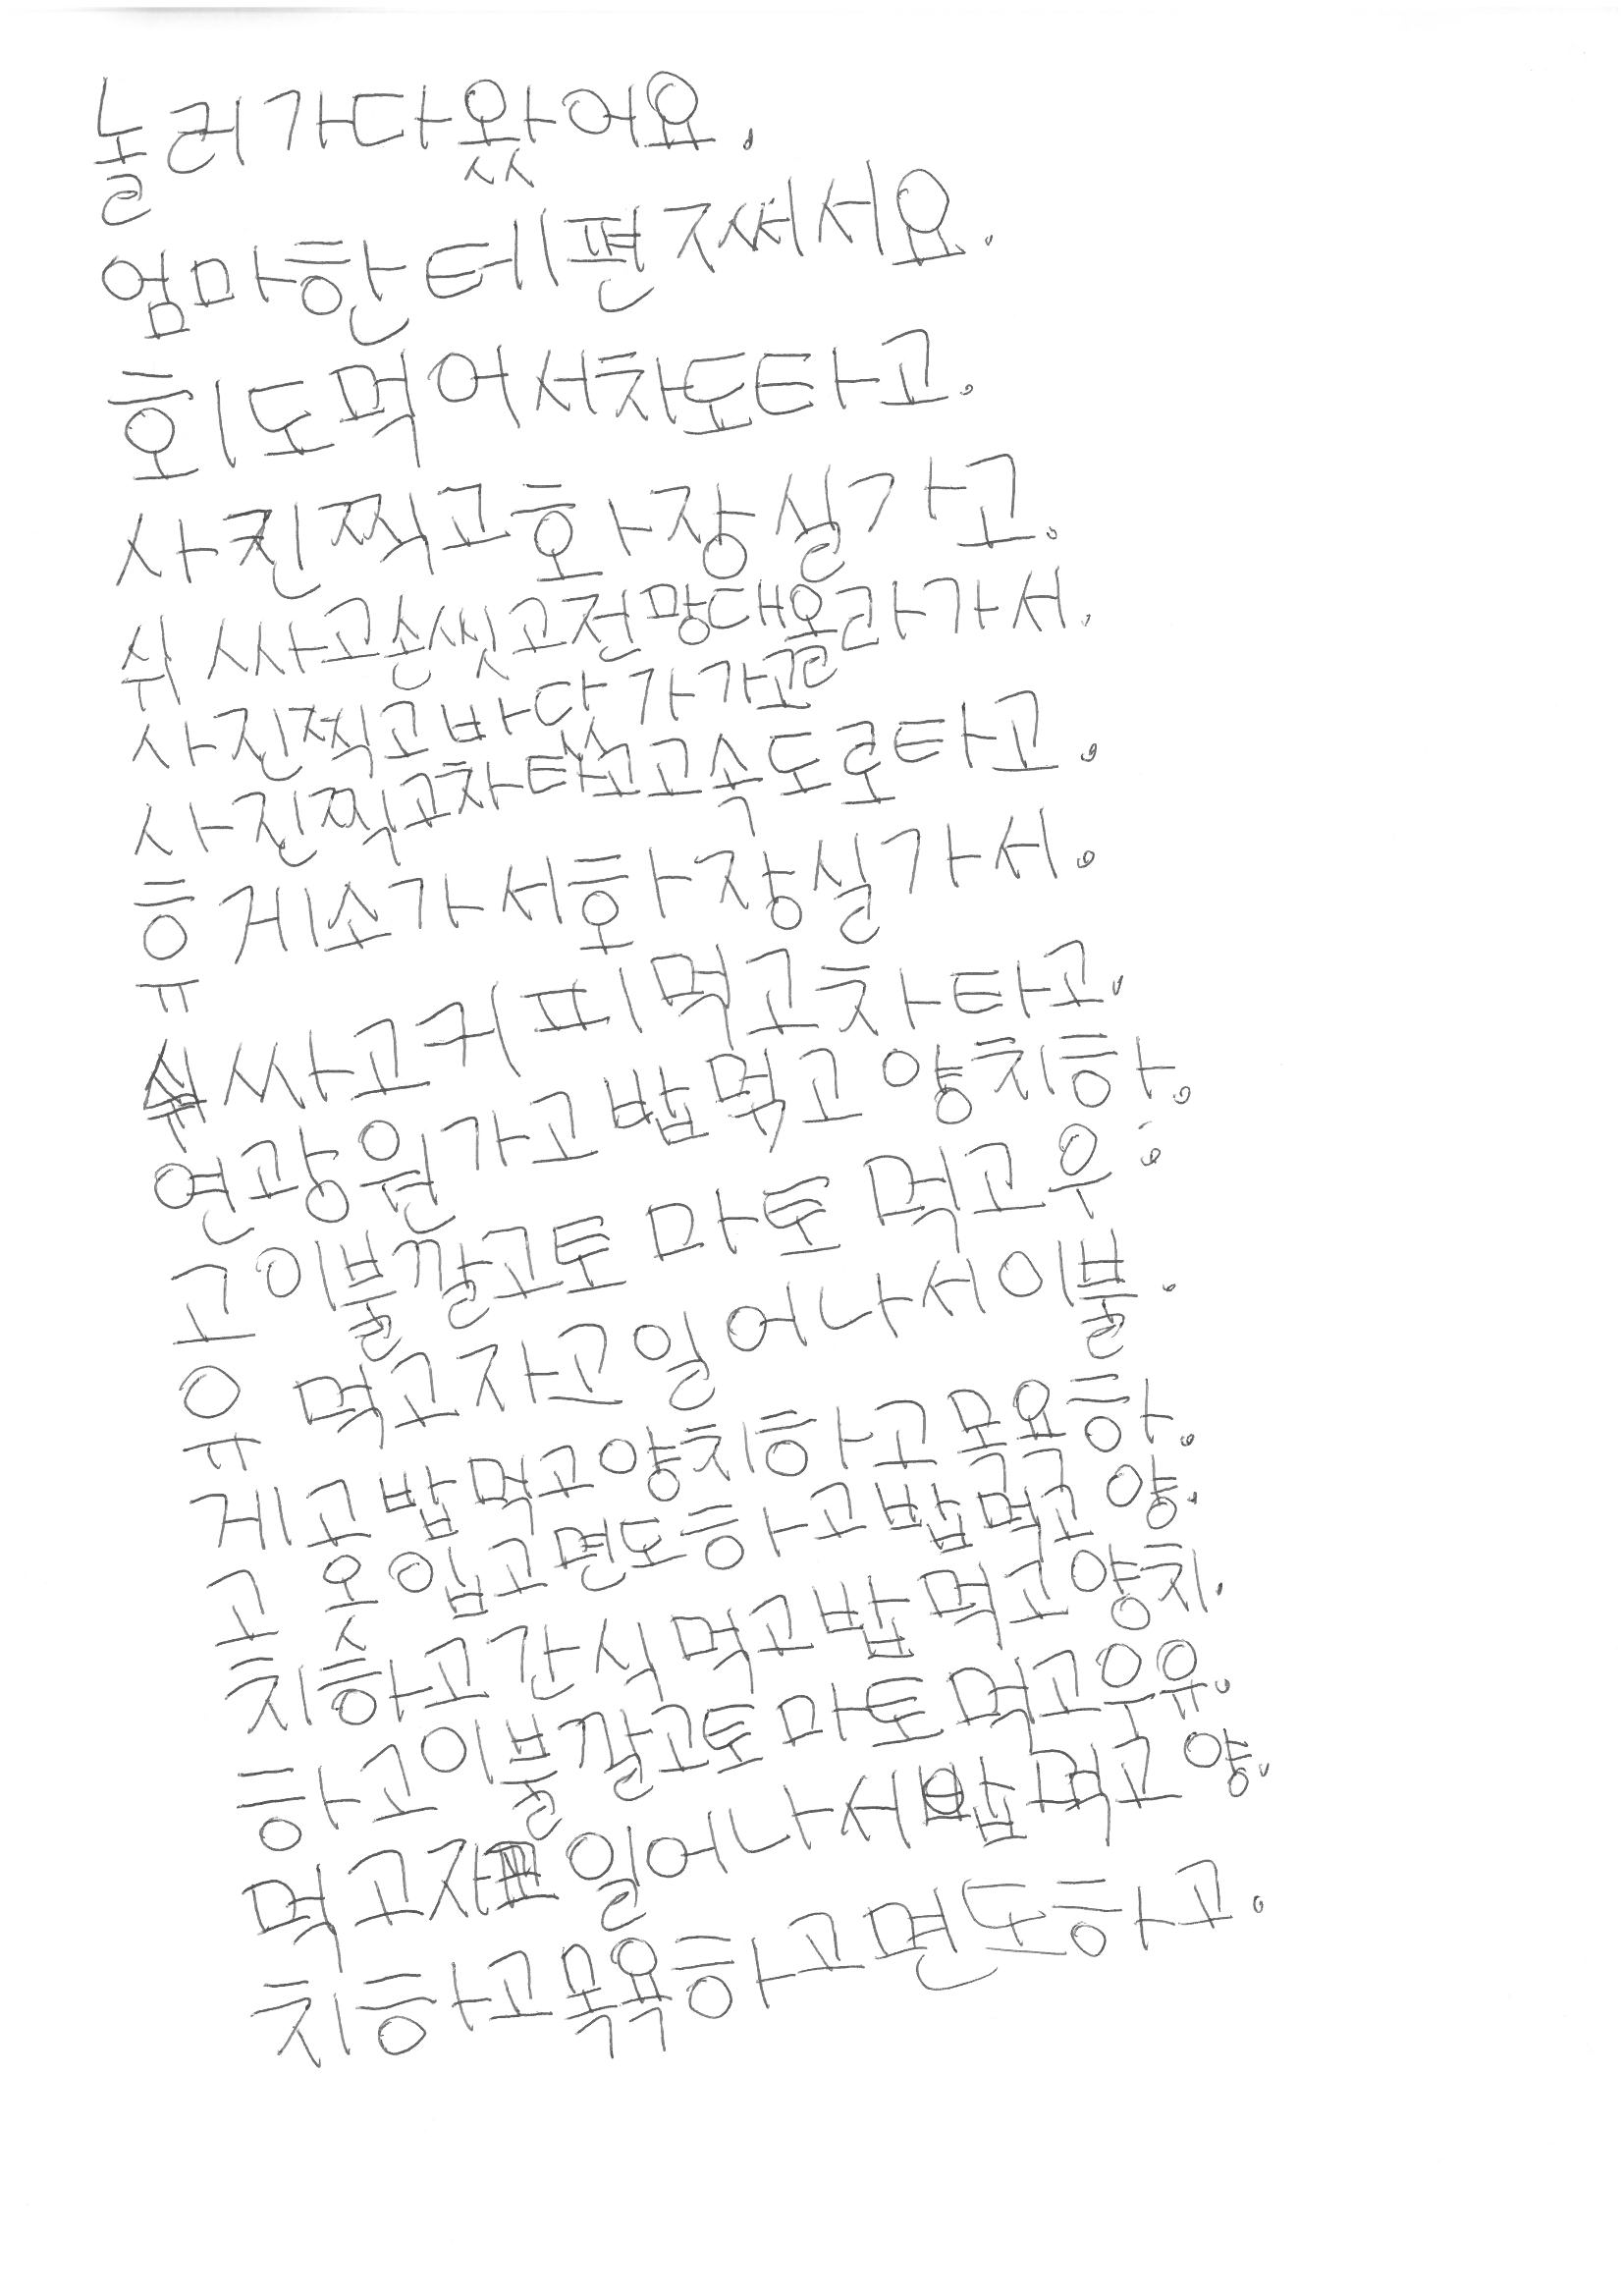 놀러가다왔어요.
엄마한테편ㅈ써서요.
회도먹어서차도타고.
사진찍고화장실가고.
쉬싸고손씻고전망대올라가서.
사진찍고바다가가고
사진찍고차타고고속도로타고.
휴게소가서화장실가서.
쉬싸고커피먹고차타고.
연광원가고밥먹고양치하.
고이불깔고토마토먹고우.
유먹고자고일어나서이불.
게고밥먹고양치하고목욕하.
고옷입고면도하고밥먹고양.
치하고간식먹고밥먹고양치.
하고이불깔고토마토먹고우유.
먹고자고일어나서밥먹고양.
치하고목욕하고면도하고.